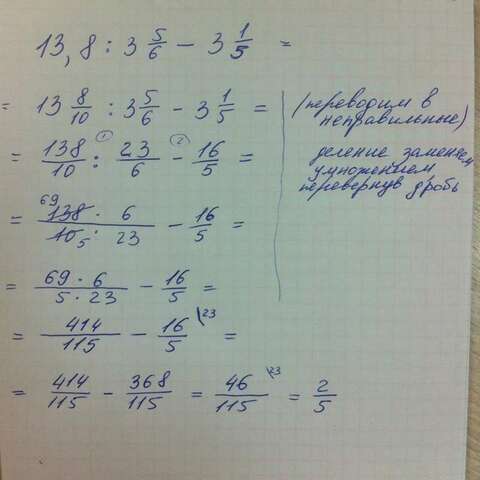 13,8 : 3 5/6 − 3 1/5 =
= 13 8/10 : 3 5/6 − 3 1/5 =
(переводим в
неправильные)
= 138/10 :① 23/6 −② 16/5 =
деление заменяем
умножением
перевернув дробь
= 69 138 · 6 / 10 5 : 23 − 16/5 =
= 69 · 6 / 5 · 23 − 16/5 =
= 414/115 − 16/5 \23 =
= 414/115 − 368/115 = 46/115 \23 = 2/5